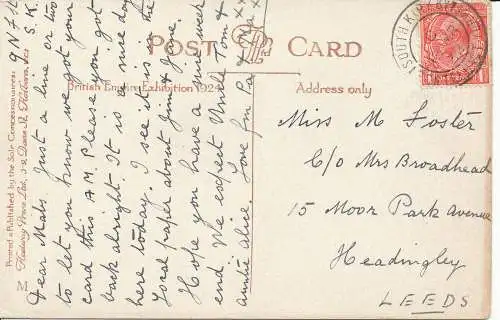 POST CARD
British Empire Exhibition 192
Address only
Printed & Published by the Sole Concessionnaires
Fleetway Press Ltd, 3-9 Dane St, Holborn, WC1
M
S.K.
Dear Mabs. Just a line or two
to let you know we got your
card this AM. Please you got
back alright. It is a nice day
here today. I see it is in the
local paper about Jim & Jane.
Hope you have a fine week
end. We expect Uncle Tom &
auntie alice. Love fm Pa & Ma xx
Miss M Foster
C/o Mrs Broadhead
15 Moor Park Avenue
Headingley
LEEDS
SOUTH